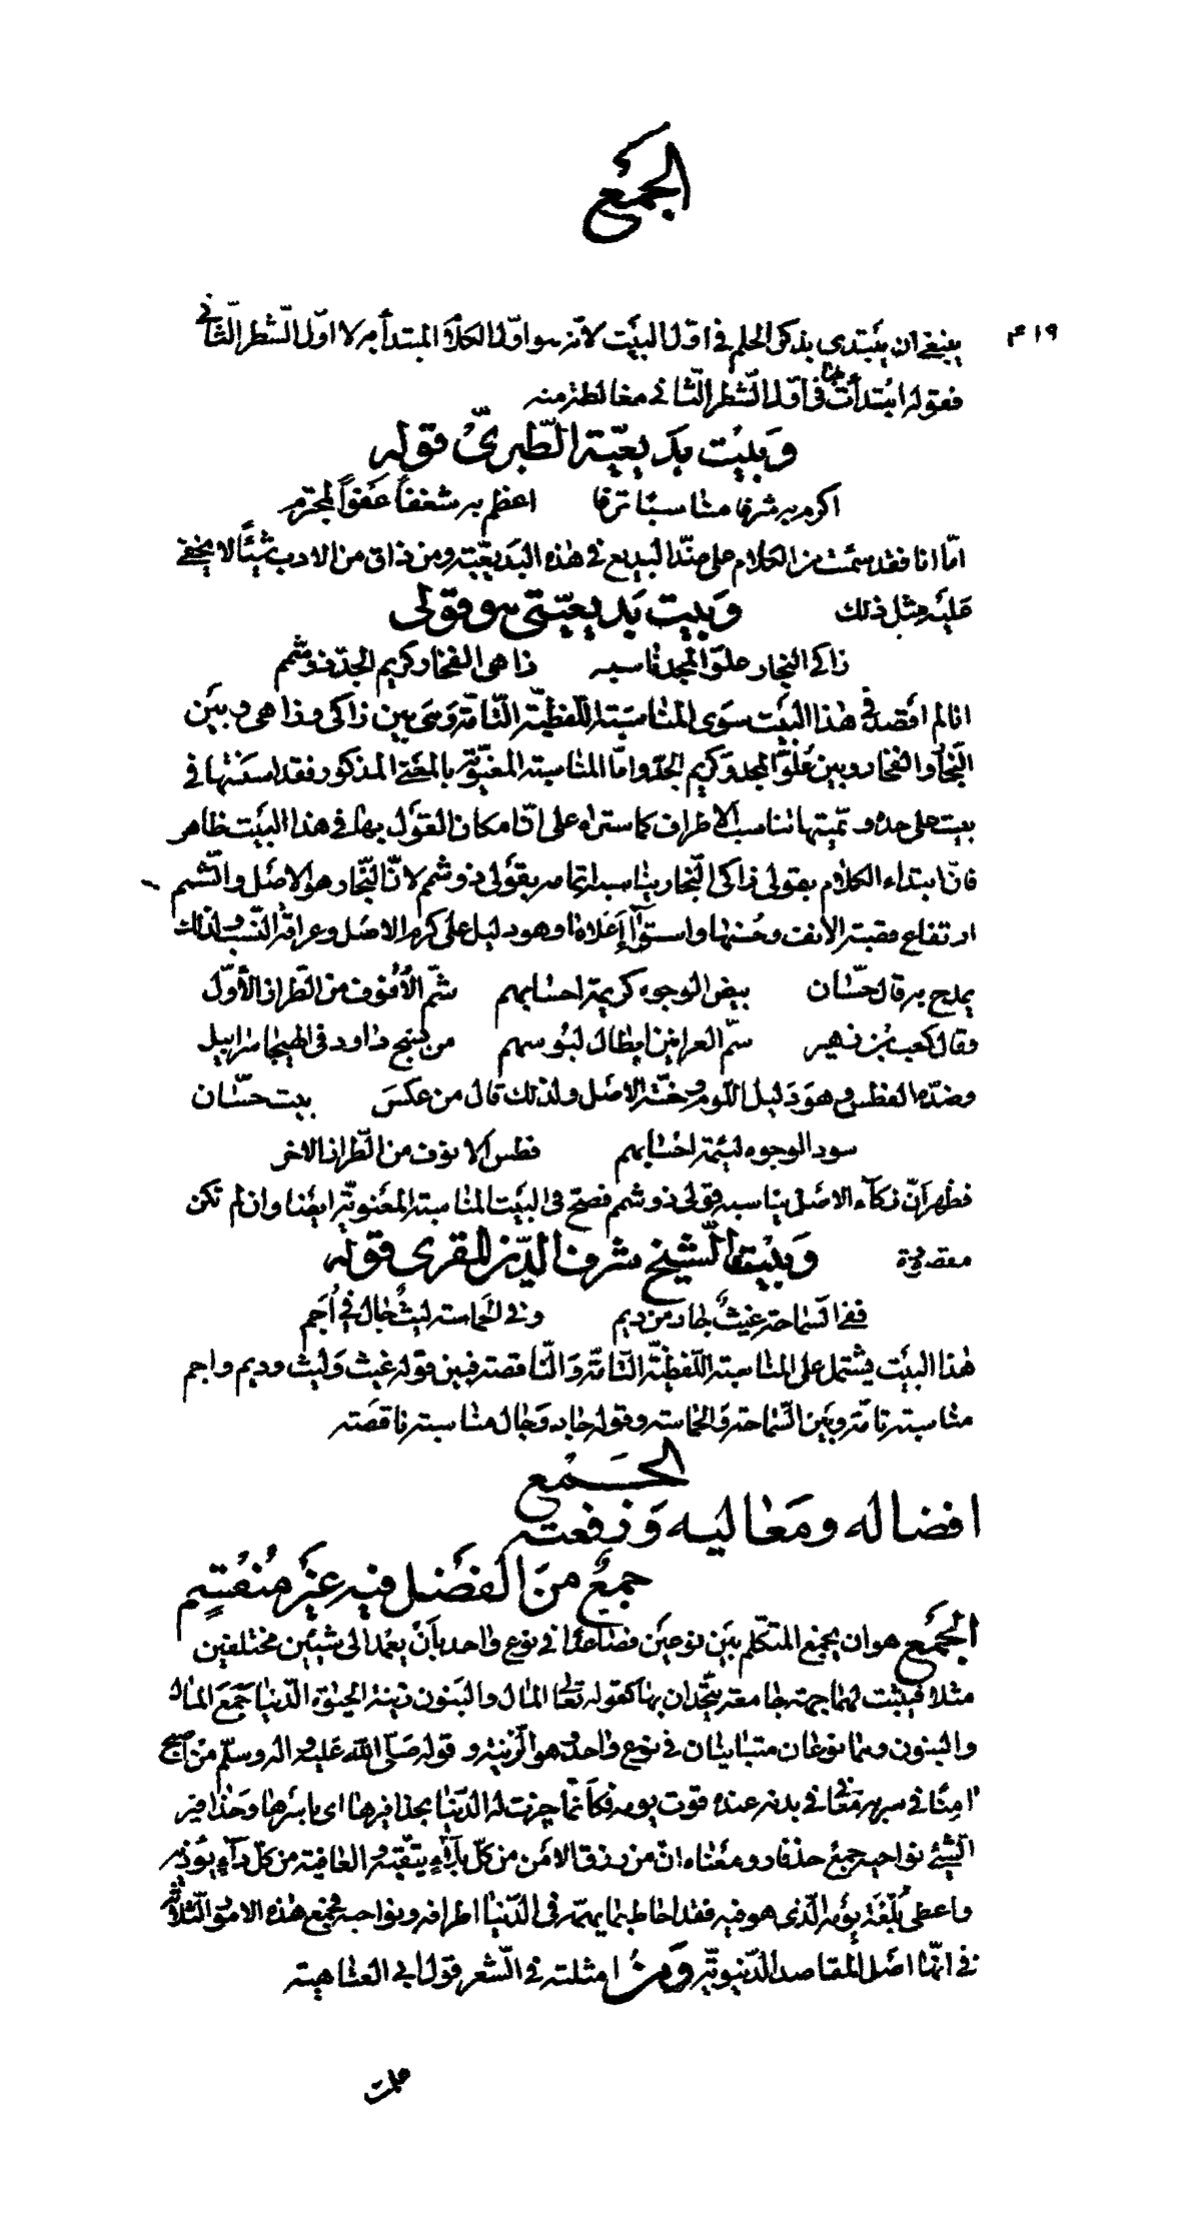 الجمع
٤١٩
ينبغي ان يبتدى بذكر الحلم في اوّل البيت لانّه هو اوّل الكلام المبتدأ به لا اوّل الشطر الثاني
فقوله ابتدأت في اوّل الشطر الثاني مغالطة منه
وَبيت بَديعيّة الطّبريّ قوله
اكرم به شرفا مناسبًا ترفا اعظم به شغفاً عَفواً لمجترم
امّا انا فقد سئمت من الكلام على هذا البديع في هذه البديعيّة ومن ذاق من الادب شيئًا لا يخفى
عَليه مثل ذلك وَبيت بَديعيّتي هو قولي
زاكي النجار علوّ المجد ناسبه زاهي الفخار كريم الجدّ ذو شمم
انا لم اقصد في هذا البيت سوى المناسبة اللّفظيّة التّامّة وَهي بين زاكي وزاهي وبين
النّجار والفخار وبين علوّ المجد وكريم الجدّ وامّا المناسبة المعنويّة بالمعنى المذكور فقد اسغتها في
بيت على حدة وتمّيتها تناسب الاطراف كما ستراه على انّ امكان القول بها في هذا البيت ظاهر
فانّ ابتداء الكلام بقولي زاكي النّجار يناسبه اتمامه بقولي ذو شمم لانّ النّجار هو الاصل والشّمم
ارتفاع قصبة الانف وحُسنها واستوآء اَعلاها وهو دليل على كرم الاصل وعراقة النّسب ولذلك
يمدح به قال حسّان بيض الوجوه كريمة احسابهم شمّ الاُنوف من الطّراز الاَوّل
وقال كعب بن زهير شمّ العرانين ابطال لبُوسهم من نسج داود في الهيجا سرابيل
وضدّه الفطس وهوَ دَليل اللّوم وخسّة الاصل ولذلك قال من عكسَ بيت حسّان
سود الوجوه لئيمة احسابهم فطس الانوف من الطّراز الاخر
فظهر انّ زكآء الاصل يناسبه قولي ذو شمم فصحّ في البيت المناسبة المعنويّة ايضا وان لم تكن
مقصودة وَبيت الشيخ شرف الدّين المقري قوله
ففي السّماحة غيثٌ جاد من ديم وفي الحماسة ليثٌ جال في اُجم
هذا البيت يشتمل على المناسبة اللّفظيّة التّامّة وَالنّاقصة فبين قوله غيث وَليث وديم واجم
مناسبة تامّة وبين السّماحة وَالحماسة وقوله جاد وَجال مناسبة ناقصَة
الجَـمع
افضاله ومَعاليه وَرفعته
جمعٌ منَ الفضل فيه غير مُنقسِمِ
الجَمع هو ان يجمع المتكلّم بين نوعين فصاعدًا في نوع واحد بأن يعمد الى شيئين مختلفين
مثلا فيثبت لهما جهة جامعة يتّحدان بها كقوله تعالى المال والبنون زينة الحيوة الدّنيا جَمعَ المال
والبنون وهما نوعان متباينان في نوع واحد هو الزّينة وقوله صلّى الله عليه واله وسلّم من اصبح
امنًا في سربه معافى في بدنه عنده قوت يومه فكأنّما حيزت له الدّنيا بحذافيرها اى بأسرها وحذافير
الشّيئ نواحيه جمع حذفار ومعناه انّ من رزق الامن من كلّ بلآءٍ يتّقيه والعافية من كلّ دآءٍ يؤذيه
واعطى بُلغة يومه الّذى هو فيه فقد احاط بما يهمّه في الدّنيا اطرافه ونواحيه فجمع هذه الامور الثّلاثة
في انّها اصل المقاصد الدّنيويّة وَمن امثلته في الشّعر قول ابي العتاهية